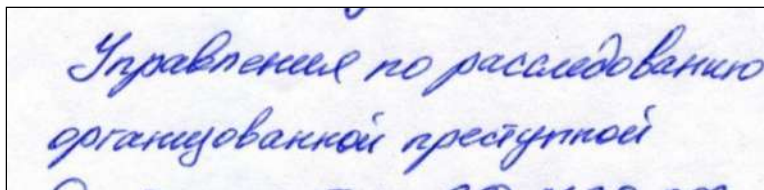 Управления по расследованию
организованной преступной